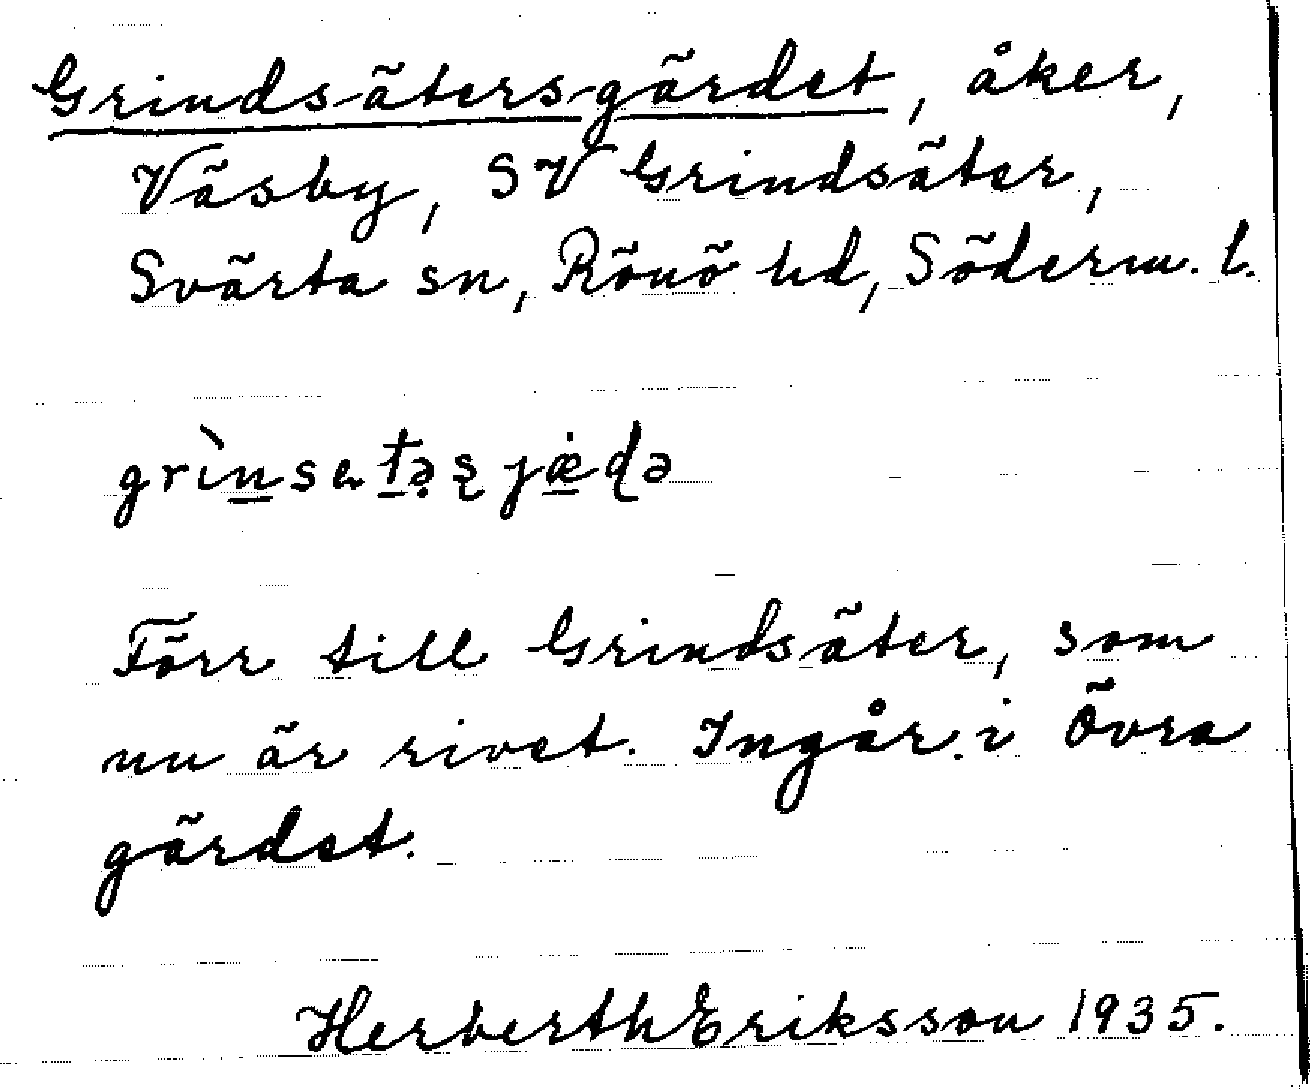 Grindsätersgärdet, åker,
Väsby, SV Grindsäter,
Svärta sn, Rönö hd, Söderm. l.
grìnsetəṣjæɖə
Förr till Grindsäter, som
nu är rivet. Ingår i Övra
gärdet.
Herberth Eriksson 1935.